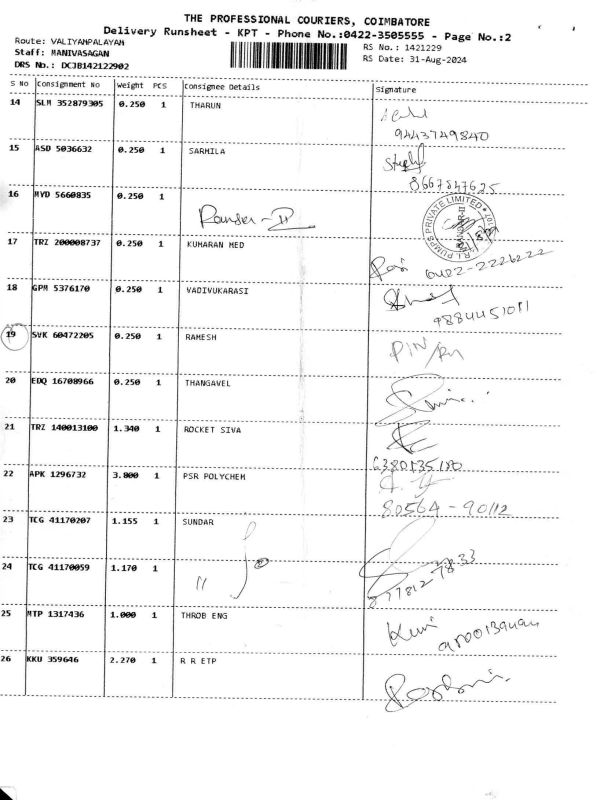 THE PROFESSIONAL COURIERS, COIMBATORE
Delivery Runsheet - KPT - Phone No.:0422-3505555 - Page No.:2
Route: VALIYAMPALAYAM
Staff: MANIVASAGAN
DRS No.: DCJB142122902
RS No.: 1421229
RS Date: 31-Aug-2024
S No Consignment No Weight PCS Consignee Details Signature
14 SLM 352879305 0.250 1 THARUN
9443749840
15 ASD 5036632 0.250 1 SARMILA
8667847625
16 MVD 5660835 0.250 1
17 TRZ 200008737 0.250 1 KUMARAN MED
0422-2226222
18 GPM 5376170 0.250 1 VADIVUKARASI
9884451011
19 SVK 60472205 0.250 1 RAMESH
20 EDQ 16708966 0.250 1 THANGAVEL
21 TRZ 140013100 1.340 1 ROCKET SIVA
22 APK 1296732 3.800 1 PSR POLYCHEM
80564-90112
23 TCG 41170207 1.155 1 SUNDAR
24 TCG 41170059 1.170 1 "
25 MTP 1317436 1.000 1 THROB ENG
26 KKU 359646 2.270 1 R R ETP